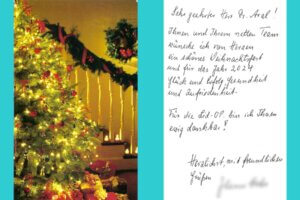 Sehr geehrter Herr Dr. Aral!
Ihnen und Ihrem netten Team
wünsche ich von Herzen
ein schönes Weihnachtsfest
und für das Jahr 2024
Glück und Erfolg Gesundheit
und Zufriedenheit.
Für die Lid-OP bin ich Ihnen
ewig dankbar!
Herzlichst, mit freundlichen
Grüßen